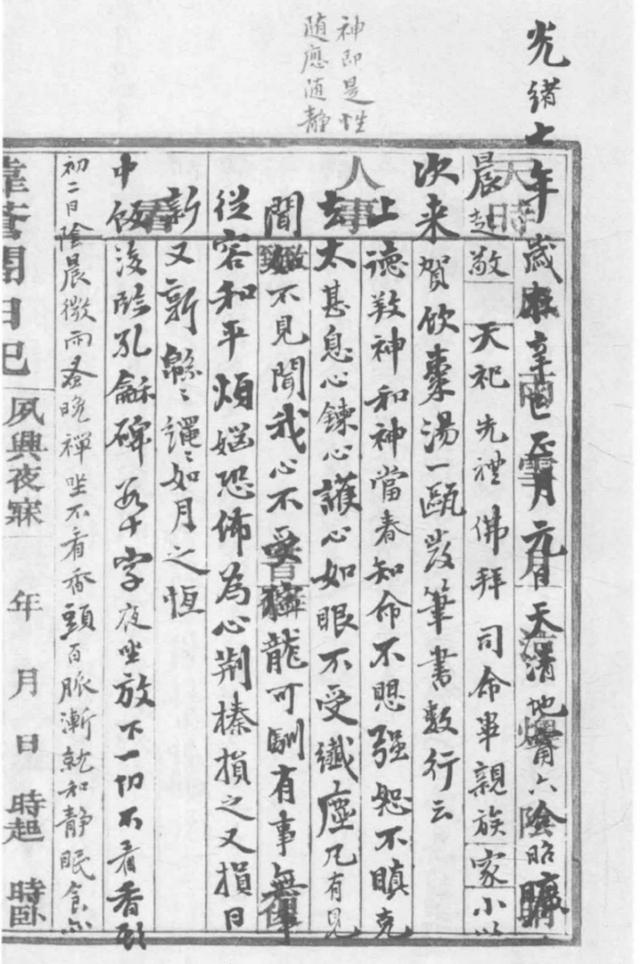 神即是性
随應随静
光緒七年歲在辛巳正月元日天清地甯六陰昭曠
晨起敬天祀先禮佛拜司命畢親族家小以
次来賀飲棗湯一甌發筆書數行云
上德敦神和神當春知命不思强恕不瞋克
去太甚息心鍊心護心如眼不受纖塵凡有見
聞如不見聞我心不受獰龍可馴有事無事
從容和平煩惱恐怖為心荆榛損之又損日
新又新緜緜繩繩如月之恆
中飯後臨孔龢碑卅字夜坐放下一切不看香頭
初二日陰晨微雨蚤晚禪坐不看香頭百脈漸就和静眠食亦
日記 夙興夜寐 年 月 日 時起 時卧
天時
人事